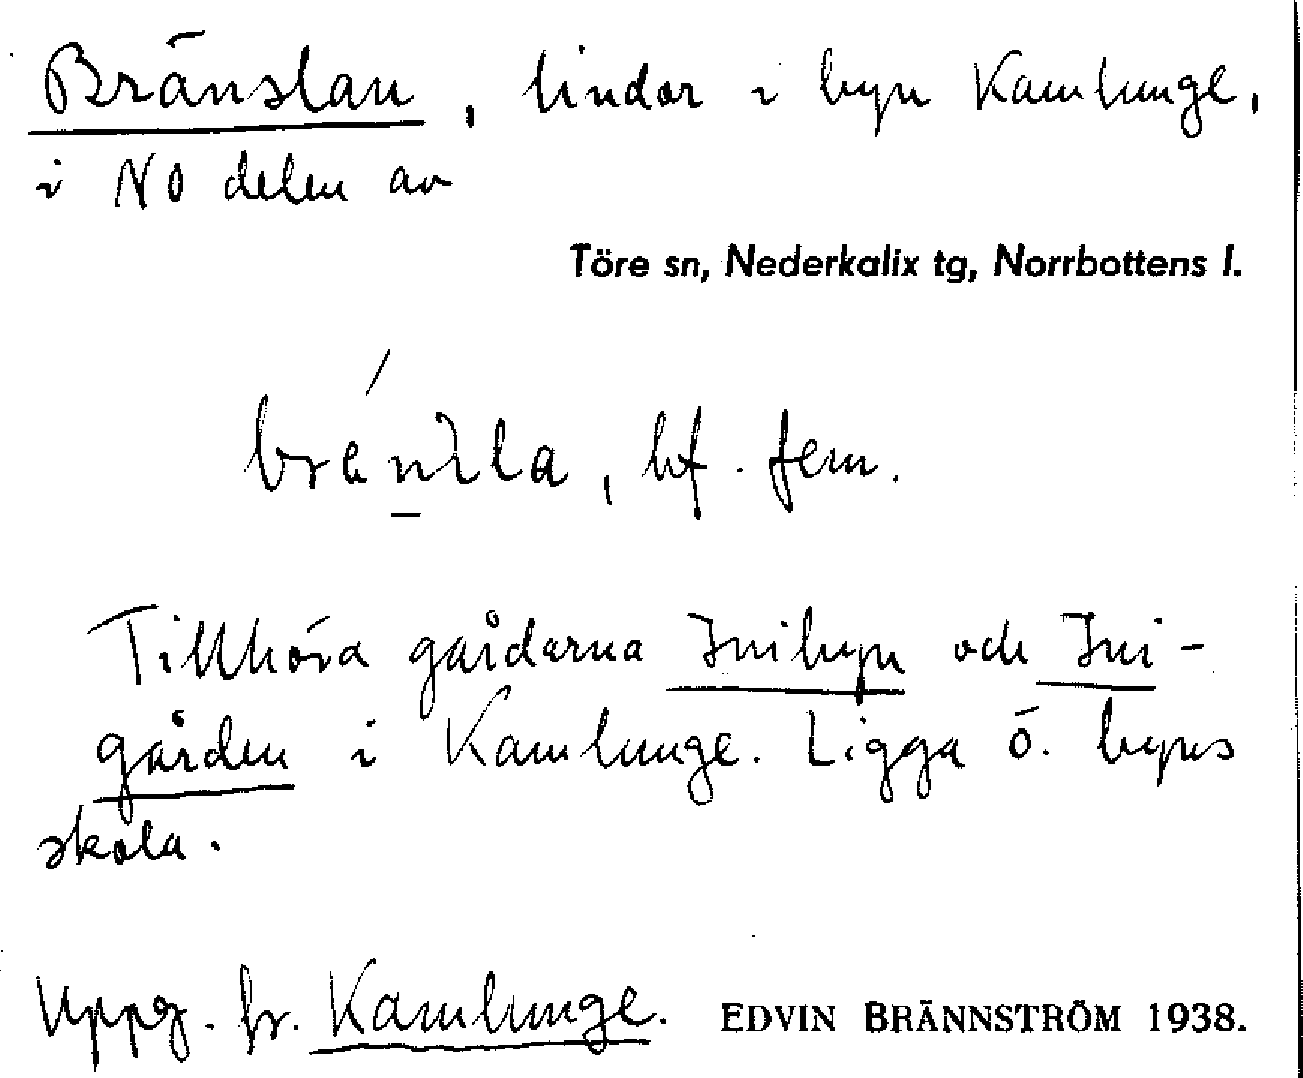 Bränslan, lindor i byn Kamlunge,
i NO delen av
Töre sn, Nederkalix tg, Norrbottens l.
bf. fem.
Tillhöra gårdarna Inibyn och Ini-
gården i Kamlunge. Ligga ö. byns
skola.
Uppg. fr. Kamlunge. EDVIN BRÄNNSTRÖM 1938.